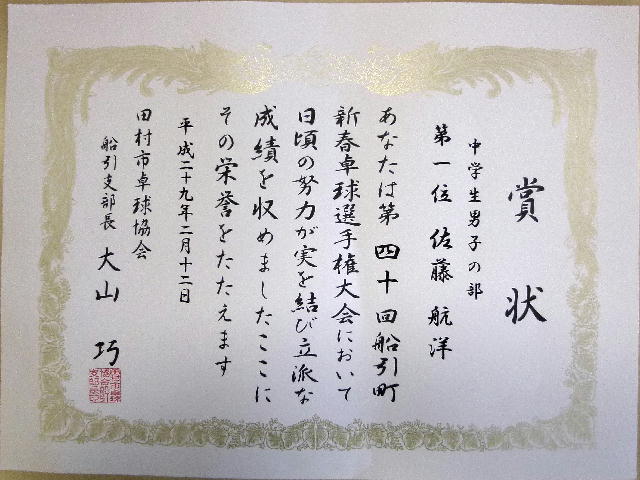 賞状
中学生男子の部
第一位 佐藤 航洋
あなたは第四十回船引町
新春卓球選手権大会において
日頃の努力が実を結び立派な
成績を収めましたここに
その栄誉をたたえます
平成二十九年二月十二日
田村市卓球協会
船引支部長 大山 巧